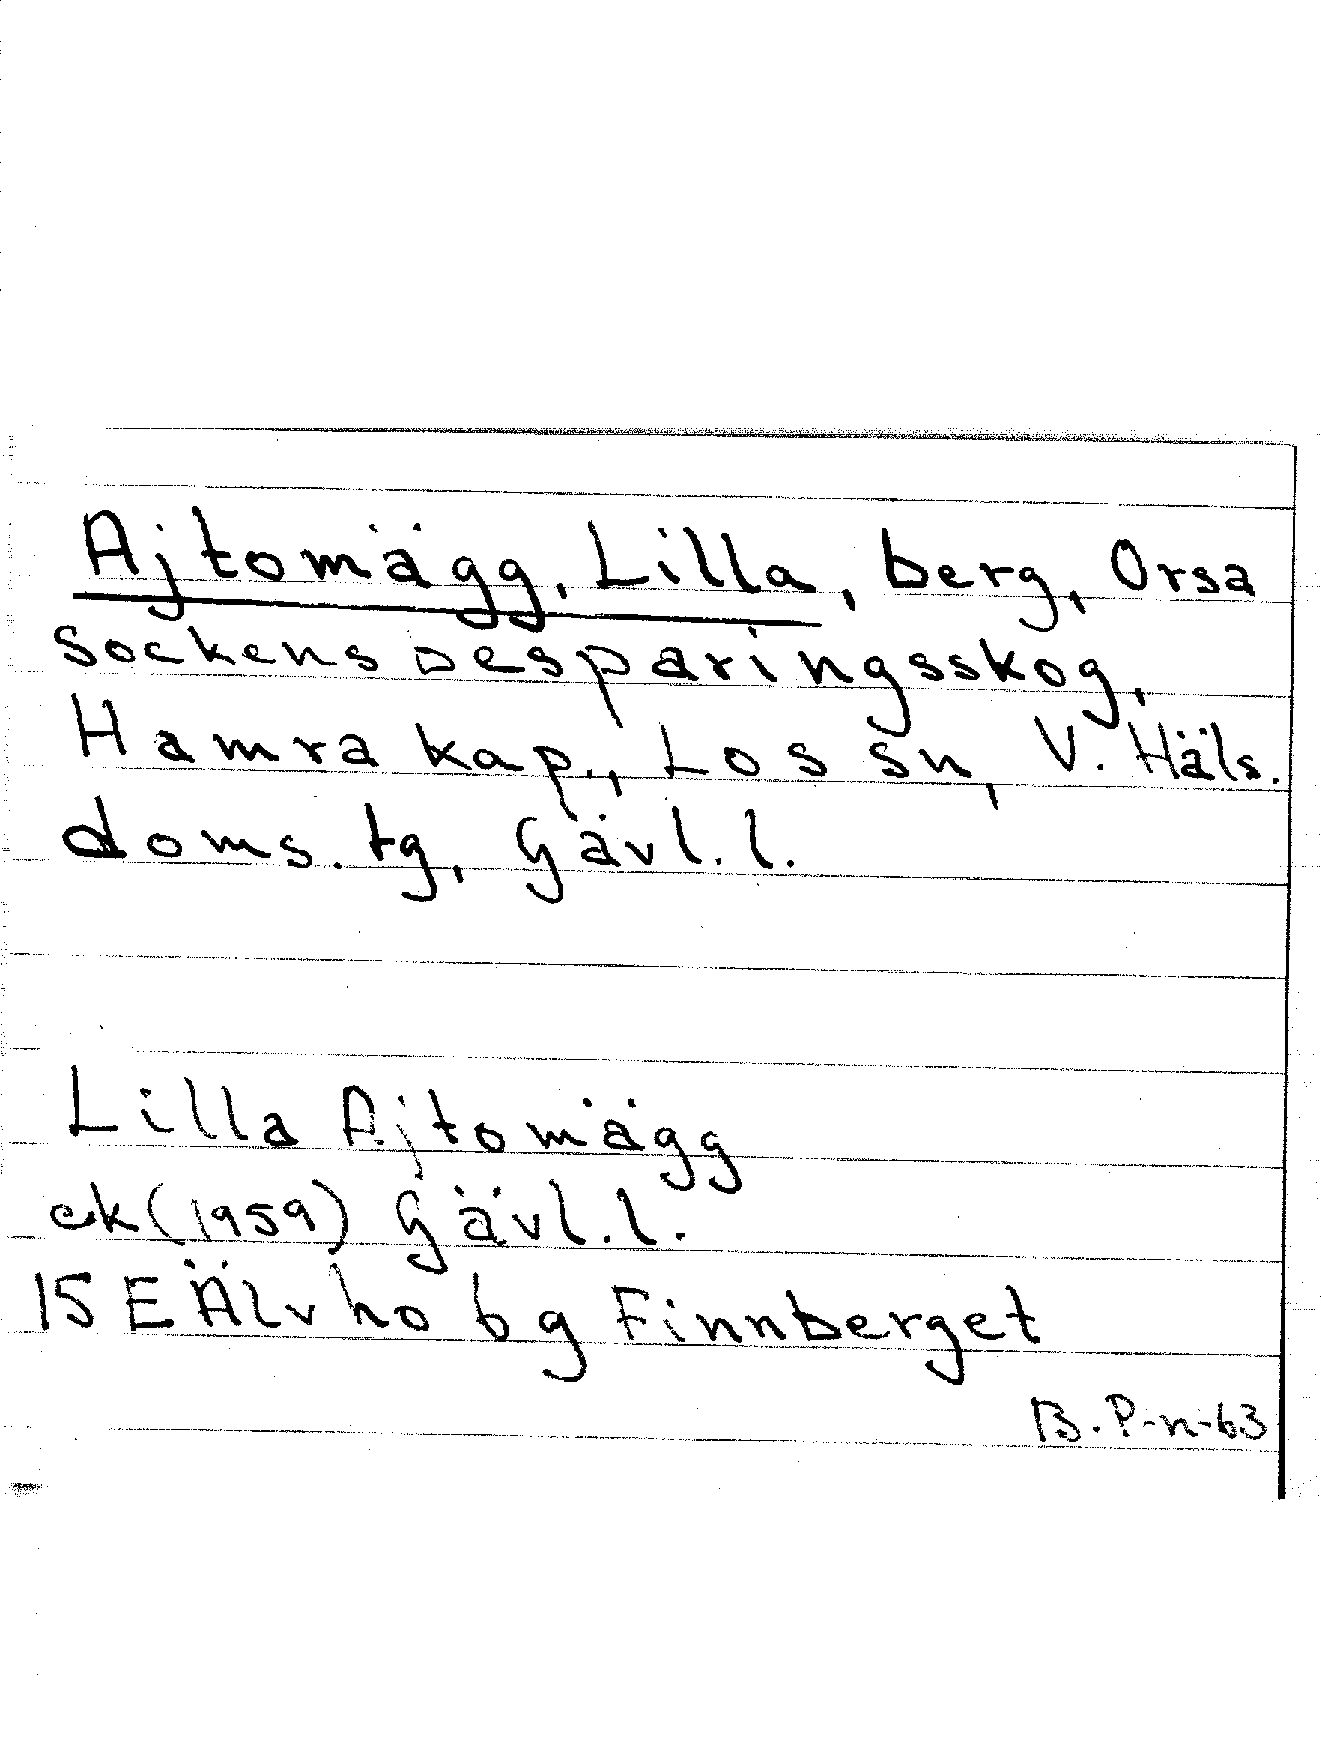 Ajtomägg, Lilla, berg, Orsa
sockens besparingsskog,
Hamra kap., Los sn, V. Häls.
doms.tg, Gävl.l.
Lilla Ajtomägg
ek (1959) Gävl.l.
15 E Älvho 6g Finnberget
B.P-n-63